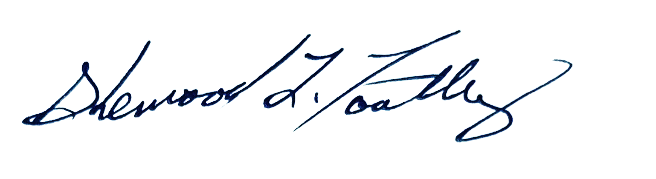 Sherwood L. Toatley